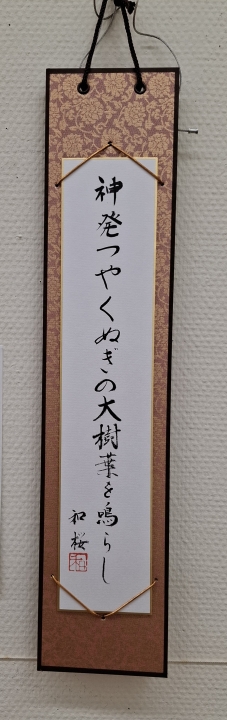 神発つやくぬぎの大樹葉を鳴らし
和桜